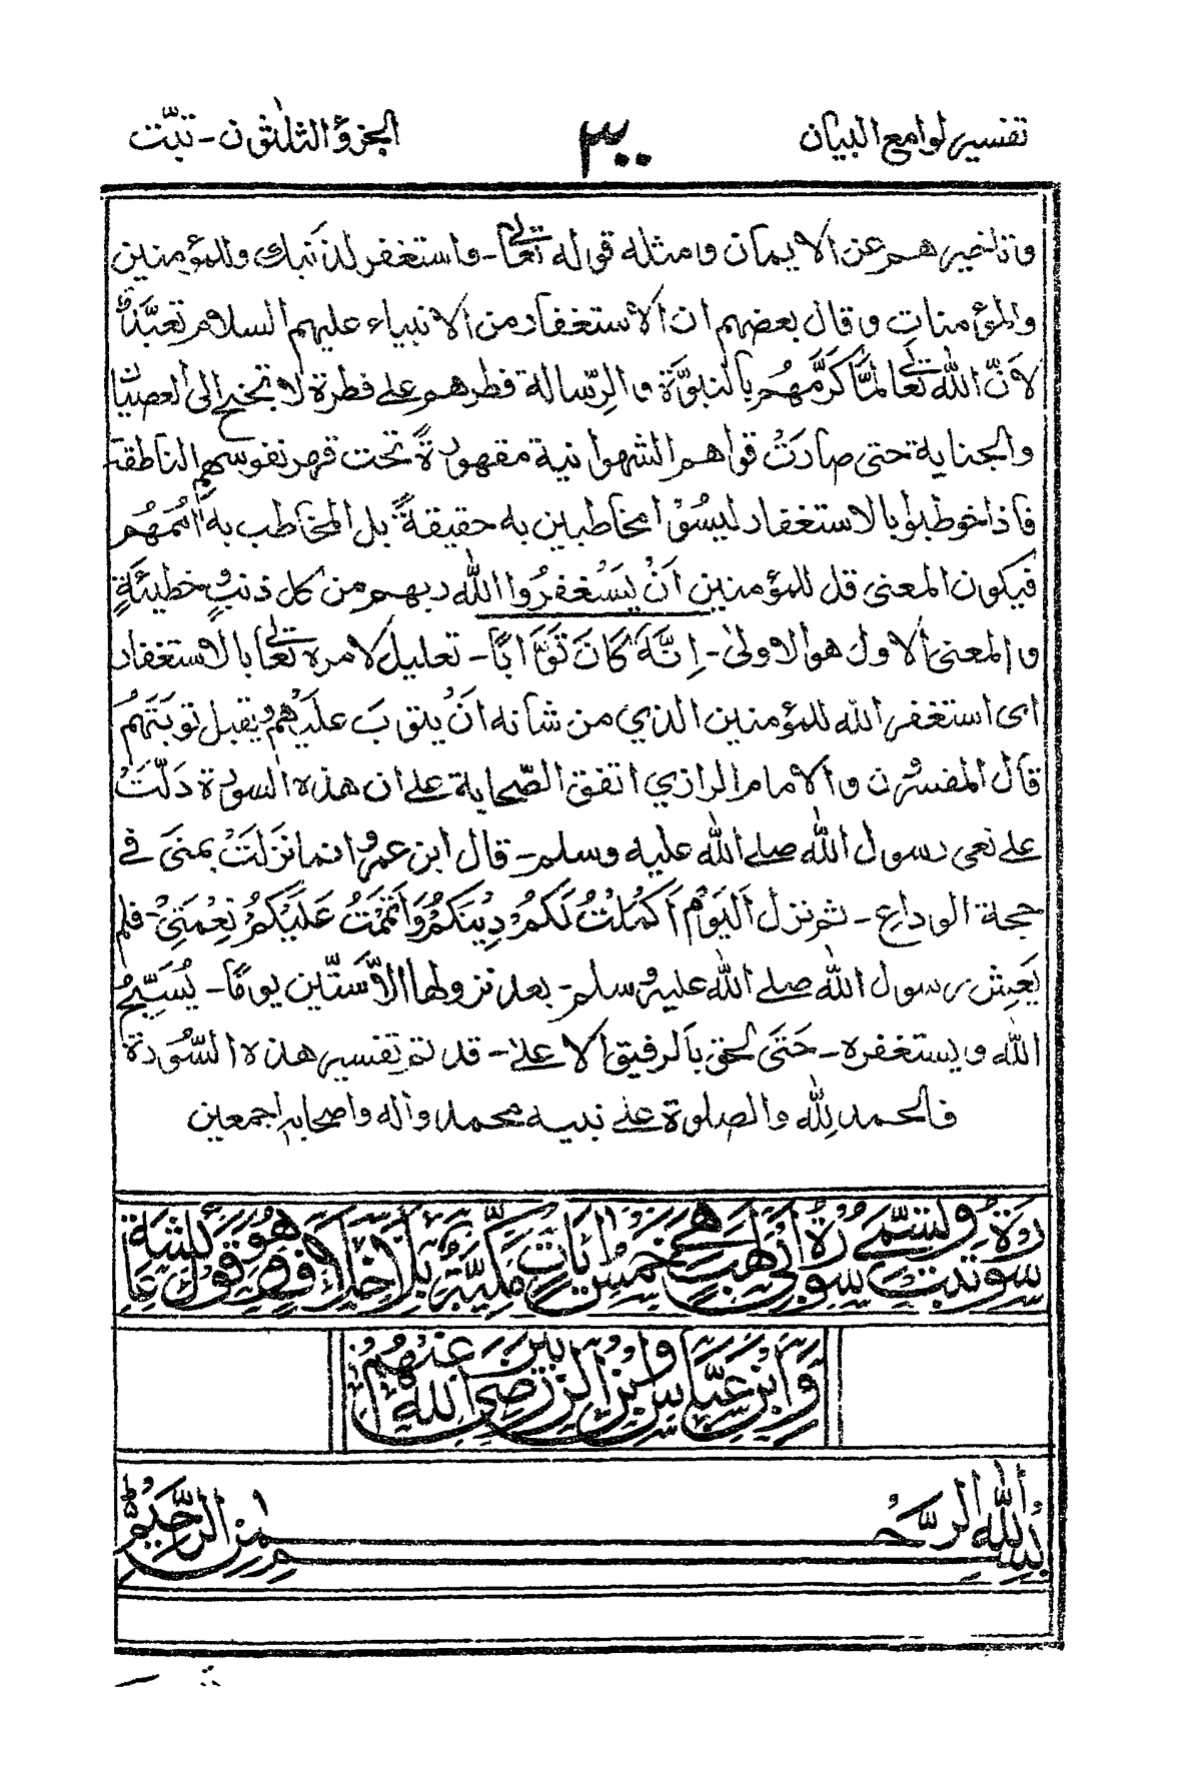 تفسير لوامع البيان ٣٠٠ الجزؤ الثلثون - تبّت
وتاخيرهم عن الايمان ومثله قوله تعالى - واستغفر لذنبك وللمؤمنين
والمؤمنات وقال بعضهم ان الأستغفار من الانبياء عليهم السلام تعبّدًا
لانّ الله تعالى لمّا كرّمهم بالنبوّة والرّسالة فطرهم على فطرة لا تجنح الى العصيان
والجناية حتى صارتْ قواهم الشهوانية مقهورةً تحت قهر نفوسهم الناطقة
فاذا خوطبوا بالاستغفار ليسُوْا مخاطبين به حقيقةً بل المخاطب به اُمَمُهُم
فيكون المعنى قل للمؤمنين اَنْ يَسْتغفرُوا الله ربهم من كل ذنبٍ وخطيئةٍ
والمعنى الاول هو الاولىٰ - اِنَّهٗ كَانَ تَوَّابًا - تعليل لامره تعالى بالاستغفار
اى استغفر الله للمؤمنين الذي من شانه انْ يتوبَ عليهم ويقبل توبتهُم
قال المفسّرون والامام الرازي اتفق الصّحابة على ان هذه السورة دَلّتْ
على نعى رسول الله صلى الله عليه وسلم - قال ابن عمرو انما نزلتْ بمنىَ فى
حجة الوداع - ثم نزل اَلْيَوْمَ اَكْمَلْتُ لَكُمْ دِيْنَكُمْ وَاَتْمَمْتُ عَلَيْكُمْ نِعْمَتِيْ - فلم
يَعِشْ رسول الله صلى الله عليه وسلم - بعد نزولها الاّ ستّين يومًا - يُسَبِّحُ
الله ويستغفره - حَتىَ لحق بالرفيق الاعلىٰ - قد تم تفسير هذه السُّورة
فالحمد لِلّٰه والصلوة على نبيه محمد واٰله واصحابه اجمعين
سورة تبت وتسمّى سورة ابى لهب هى خمس اٰيات مكيّة بلا خلاف وهو قول عائشة
وابن عبّاس وابن الزبير رضى الله عنهم
بسم الله الرحمن الرحيم